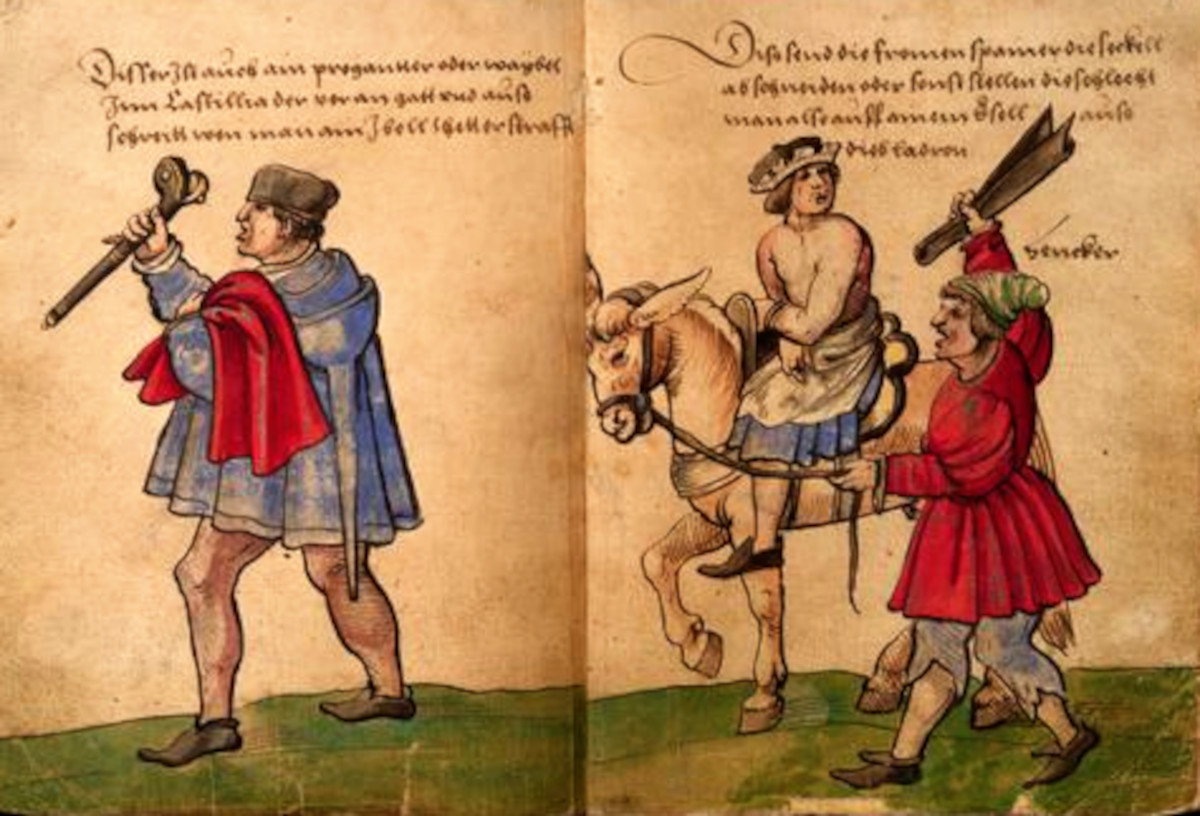 Disser Ist auch ain progantter oder waybel
Inn Castillia der vor an gatt vnd auss
schreitt wen man am Ibell thetter strafft
Diss send die fromen spanier die seckell
ab schneiden oder sonst stellen die schlecht
man also auff ainem Esell auss
dieb ladron
hencker